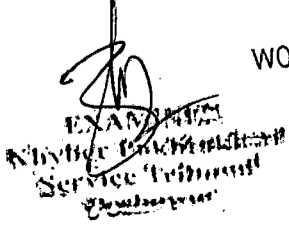 WO
EXAMINER
Khyber Pakhtukhwa
Service Tribunal
Peshawar